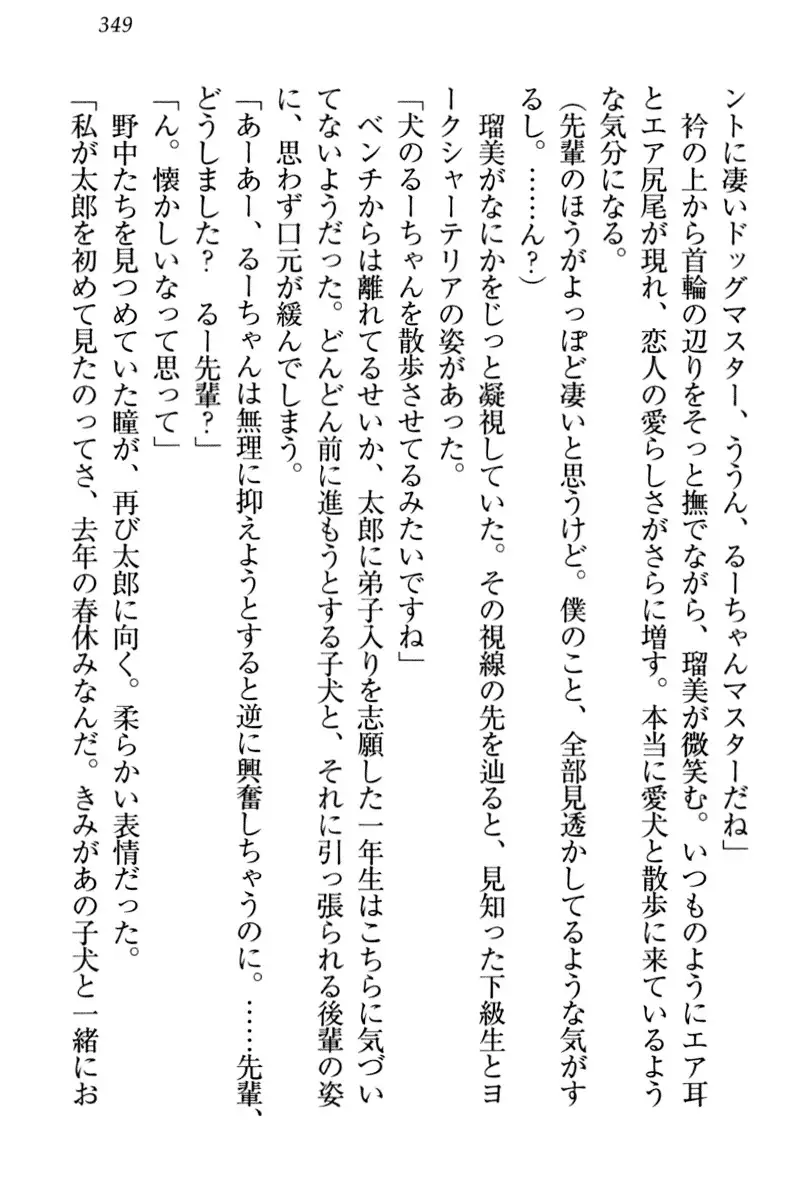 349
ントに凄いドッグマスター、ううん、るーちゃんマスターだね」
　衿の上から首輪の辺りをそっと撫でながら、瑠美が微笑む。いつものようにエア耳
とエア尻尾が現れ、恋人の愛らしさがさらに増す。本当に愛犬と散歩に来ているよう
な気分になる。
（先輩のほうがよっぽど凄いと思うけど。僕のこと、全部見透かしてるような気がす
るし。……ん？）
　瑠美がなにかをじっと凝視していた。その視線の先を辿ると、見知った下級生とヨ
ークシャーテリアの姿があった。
「犬のるーちゃんを散歩させてるみたいですね」
　ベンチからは離れてるせいか、太郎に弟子入りを志願した一年生はこちらに気づい
てないようだった。どんどん前に進もうとする子犬と、それに引っ張られる後輩の姿
に、思わず口元が緩んでしまう。
「あーあー、るーちゃんは無理に抑えようとすると逆に興奮しちゃうのに。……先輩、
どうしました？　るー先輩？」
「ん。懐かしいなって思って」
　野中たちを見つめていた瞳が、再び太郎に向く。柔らかい表情だった。
「私が太郎を初めて見たのってさ、去年の春休みなんだ。きみがあの子犬と一緒にお